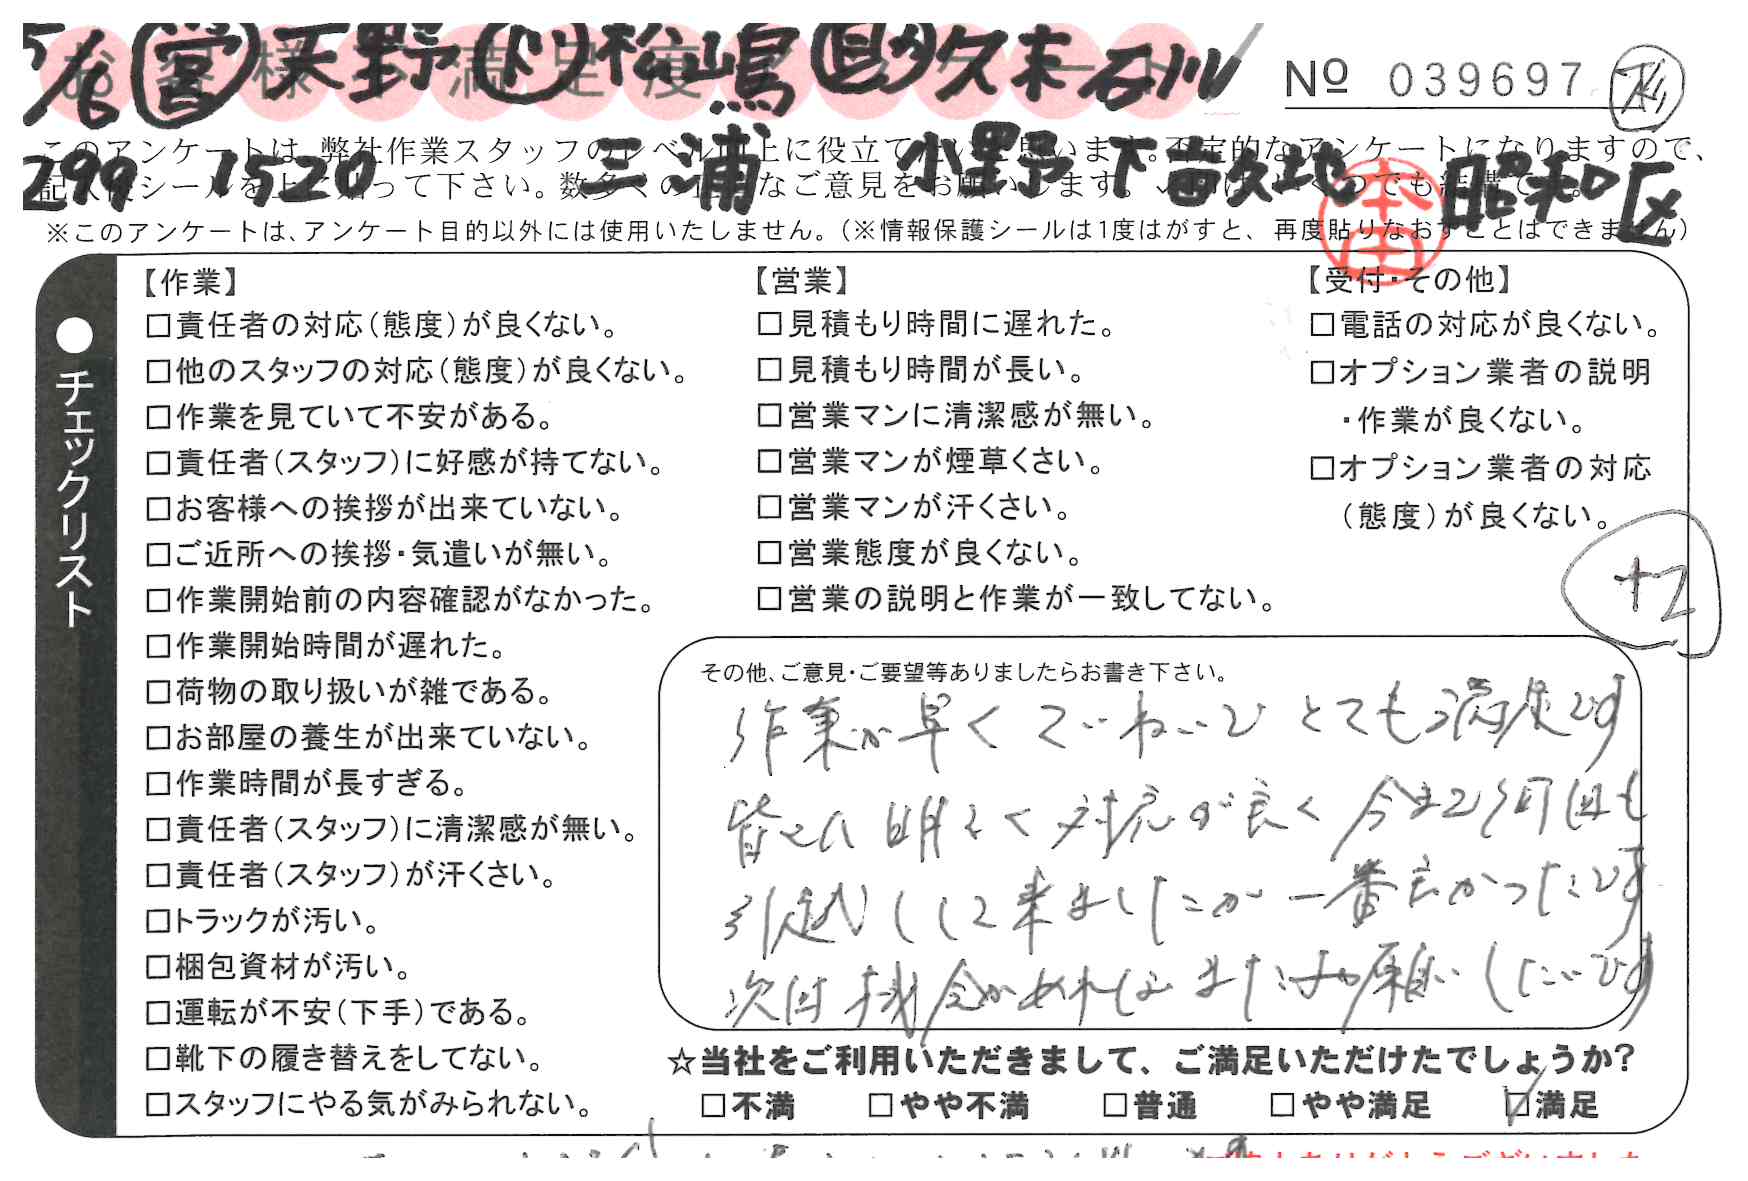 5/6 営 天野 ト 松嶋 助 久末 石川
お客様 満足度 ート
No 039697
このアンケートは、弊社作業スタッフのレベル向上に役立てたいと思います。否定的なアンケートになりますので、
299 1520 三浦 小野 下 昭和区
記入後シールを上に貼って下さい。数多くの正直なご意見をお願いします。
本田
※このアンケートは、アンケート目的以外には使用いたしません。(※情報保護シールは1度はがすと、再度貼りなおすことはできません)
●チェックリスト
【作業】
□責任者の対応(態度)が良くない。
□他のスタッフの対応(態度)が良くない。
□作業を見ていて不安がある。
□責任者(スタッフ)に好感が持てない。
□お客様への挨拶が出来ていない。
□ご近所への挨拶・気遣いが無い。
□作業開始前の内容確認がなかった。
□作業開始時間が遅れた。
□荷物の取り扱いが雑である。
□お部屋の養生が出来ていない。
□作業時間が長すぎる。
□責任者(スタッフ)に清潔感が無い。
□責任者(スタッフ)が汗くさい。
□トラックが汚い。
□梱包資材が汚い。
□運転が不安(下手)である。
□靴下の履き替えをしてない。
□スタッフにやる気がみられない。
【営業】
□見積もり時間に遅れた。
□見積もり時間が長い。
□営業マンに清潔感が無い。
□営業マンが煙草くさい。
□営業マンが汗くさい。
□営業態度が良くない。
□営業の説明と作業が一致してない。
【受付・その他】
□電話の対応が良くない。
□オプション業者の説明
・作業が良くない。
□オプション業者の対応
(態度)が良くない。
+2
その他、ご意見・ご要望等ありましたらお書き下さい。
作業が早くていねいでとても満足です
皆さん明るく対応が良く今まで何回も
引越ししてきましたが一番良かったです
次回機会があればまたお願いしたいです
☆当社をご利用いただきまして、ご満足いただけたでしょうか?
□不満 □やや不満 □普通 □やや満足 ☑満足